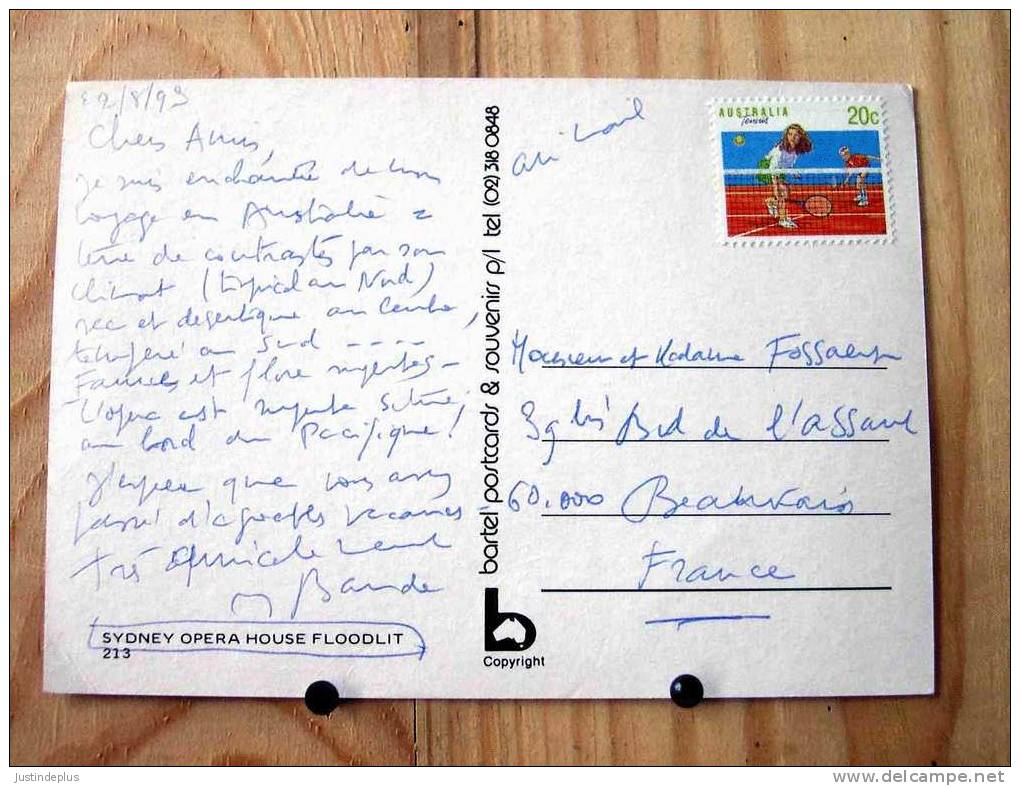 22/8/93
Chers Amis,
je suis enchantée de mon
voyage en Australie
terre de contrastes par son
climat (tropical au Nord)
sec et désertique au Centre,
tempéré au Sud ----
Faune et flore
L'opéra est situé
au bord du Pacifique!
J'espère que vous avez
passé d'agréables vacances
Très Amicalement
SYDNEY OPERA HOUSE FLOODLIT
213
bartel postcards & souvenirs p/l tel (02) 318 0848
Copyright
air mail
AUSTRALIA 20c
Tennis
Monsieur et Madame
39 bis Bd de l'assaut
60.000 Beauvais
France
justindeplus
delcampe.net